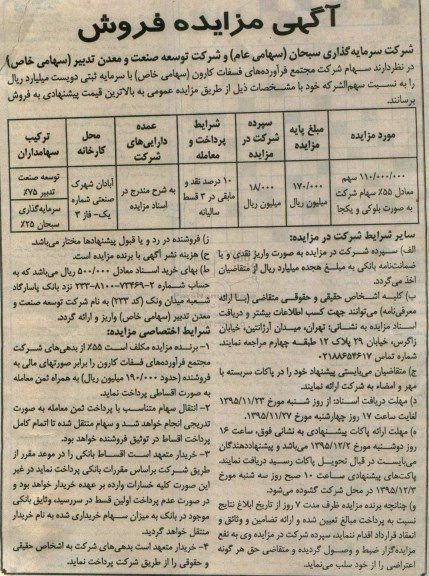 آگهی مزایده فروش
شرکت سرمایه‌گذاری سبحان (سهامی عام) و شرکت توسعه صنعت و معدن تدبیر (سهامی خاص)
در نظر دارند سهام شرکت مجتمع فرآورده‌های فسفات کارون (سهامی خاص) با سرمایه ثبتی دویست میلیارد ریال
را به نسبت سهم‌الشرکه خود با مشخصات ذیل از طریق مزایده عمومی به بالاترین قیمت پیشنهادی به فروش
برسانند.
مورد مزایده
مبلغ پایه مزایده
سپرده شرکت در مزایده
شرایط پرداخت و معامله
عمده دارایی‌های شرکت
محل کارخانه
ترکیب سهامداران
۱۱۰/۰۰۰/۰۰۰ سهم
معادل ۵۵٪ سهام شرکت
به صورت بلوکی و یکجا
۱۷۰/۰۰۰
میلیون ریال
۱۸/۰۰۰
میلیون ریال
۱۰ درصد نقد و
مابقی در ۳ قسط
سالیانه
به شرح مندرج در
اسناد مزایده
آبادان شهرک
صنعتی شماره
یک- فاز ۳
توسعه صنعت
تدبیر ۷۵٪
سرمایه‌گذاری
سبحان ۲۵٪
سایر شرایط شرکت در مزایده:
الف) سپرده شرکت در مزایده به صورت واریز نقدی و یا
ضمانت‌نامه بانکی به مبلغ هجده میلیارد ریال از متقاضیان
اخذ می‌گردد.
ب) کلیه اشخاص حقیقی و حقوقی متقاضی (با ارائه
معرفی‌نامه) می‌توانند جهت کسب اطلاعات بیشتر و دریافت
اسناد مزایده به نشانی: تهران، میدان آرژانتین، خیابان
زاگرس، خیابان ۲۹ پلاک ۱۲ طبقه چهارم مراجعه نمایند.
شماره تماس ۰۲۱۸۸۶۵۴۶۱۷
ج) متقاضیان می‌بایستی پیشنهاد خود را در پاکات سربسته با
مهر و امضاء به شرکت ارائه نمایند.
د) مهلت دریافت اسناد: از روز شنبه مورخ ۱۳۹۵/۱۱/۲۳
لغایت ساعت ۱۷ روز چهارشنبه مورخ ۱۳۹۵/۱۱/۲۷.
ه) مهلت ارائه پاکات پیشنهادی به نشانی فوق، ساعت ۱۶
روز دوشنبه مورخ ۱۳۹۵/۱۲/۲ می‌باشد و پیشنهاددهندگان
می‌بایست در قبال تحویل پاکات رسید دریافت نمایند.
پاکت‌های پیشنهادی ساعت ۱۰ صبح روز سه شنبه مورخ
۱۳۹۵/۱۲/۳ در محل شرکت گشوده می‌شود.
و) چنانچه برنده مزایده ظرف مدت ۷ روز از تاریخ ابلاغ نتایج
نسبت به پرداخت مبالغ تعیین شده و ارائه تضامین و وثائق و
انعقاد قرارداد اقدام ننماید، سپرده شرکت در مزایده وی به نفع
مزایده‌گزار ضبط و وصول گردیده و متقاضی حق هر گونه
اعتراضی را از خود سلب می‌نماید.
ز) فروشنده در رد و یا قبول پیشنهادها مختار می‌باشد.
ح) هزینه نشر آگهی با برنده مزایده است.
ط) بهای خرید اسناد معادل ۵۰۰/۰۰۰ ریال می‌باشد که به
حساب شماره ۲-۷۳۴۶۹-۸۱۰۰-۲۳۳ نزد بانک پاسارگاد
شعبه میدان ونک (کد ۲۳۳) به نام شرکت توسعه صنعت و
معدن تدبیر (سهامی خاص) واریز و ارائه گردد.
شرایط اختصاصی مزایده:
۱- برنده مزایده مکلف است ۵۵٪ از بدهی‌های شرکت
مجتمع فرآورده‌های فسفات کارون را برابر صورتهای مالی به
فروشنده (حدود ۱۹۰/۰۰۰ میلیون ریال) به همراه ثمن معامله
به صورت اقساطی پرداخت نماید.
۲- انتقال سهام متناسب با پرداخت ثمن معامله به صورت
تدریجی انجام خواهد شد و سهام منتقل شده تا اتمام کامل
پرداخت اقساط در توثیق فروشنده خواهد بود.
۳- خریدار متعهد است اقساط بانکی را در موعد مقرر از
طریق شرکت براساس مقررات بانکی پرداخت نماید در غیر
این صورت کلیه خسارات وارده بر عهده خریدار خواهد بود و
در صورت عدم پرداخت اولین قسط در سررسید، وثایق بانکی
موجود در بانک به میزان سهام خریداری شده به نام خریدار
منتقل خواهد گردید.
۴- خریدار متعهد است بدهی‌های شرکت به اشخاص حقیقی
و حقوقی را از طریق شرکت پرداخت نماید.